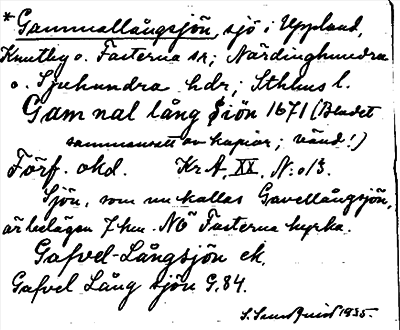 * Gammallångsjön, sjö i Uppland,
Knutby o. Fasterna sr; Närdinghundra
o. Sjuhundra hdr; Sthlms l.
Gam nal lång Siön 1671 (Bladet
sammansatt av kapior; vänd!)
Förf. okd. Kr A, XX, N:o 13.
Sjön, som nu kallas Gavellångsjön,
är belägen 7 km. NÖ Fasterna kyrka.
Gafvel-Långsjön ek.
Gafvel Lång sjön G. 84.
1935.